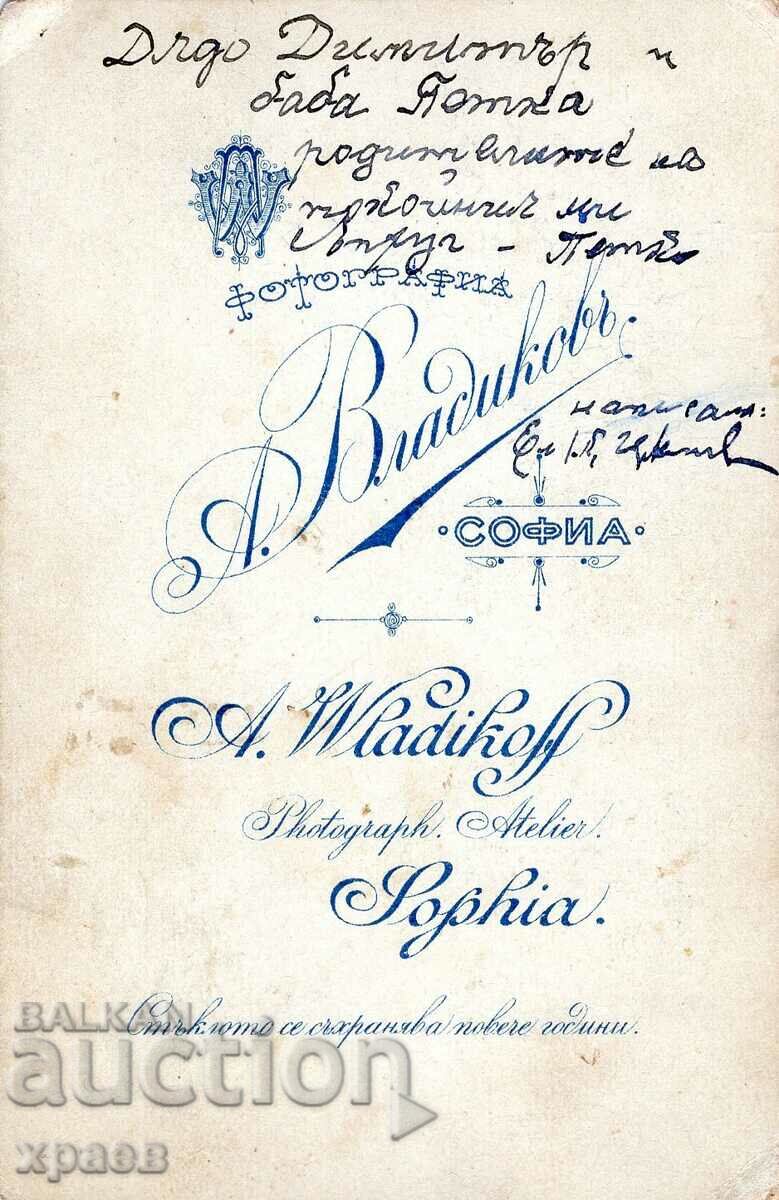 Дядо Димитър и
баба Петка
родителите на
покойния ми
съпруг - Петко
ФОТОГРАФИА
А. Владиковъ.
написала:
Ел.
СОФИА
A. Wladikoff
Photograph. Atelier.
Sophia.
Стъклото се съхранява повече години.
BALKAN
auction
храев